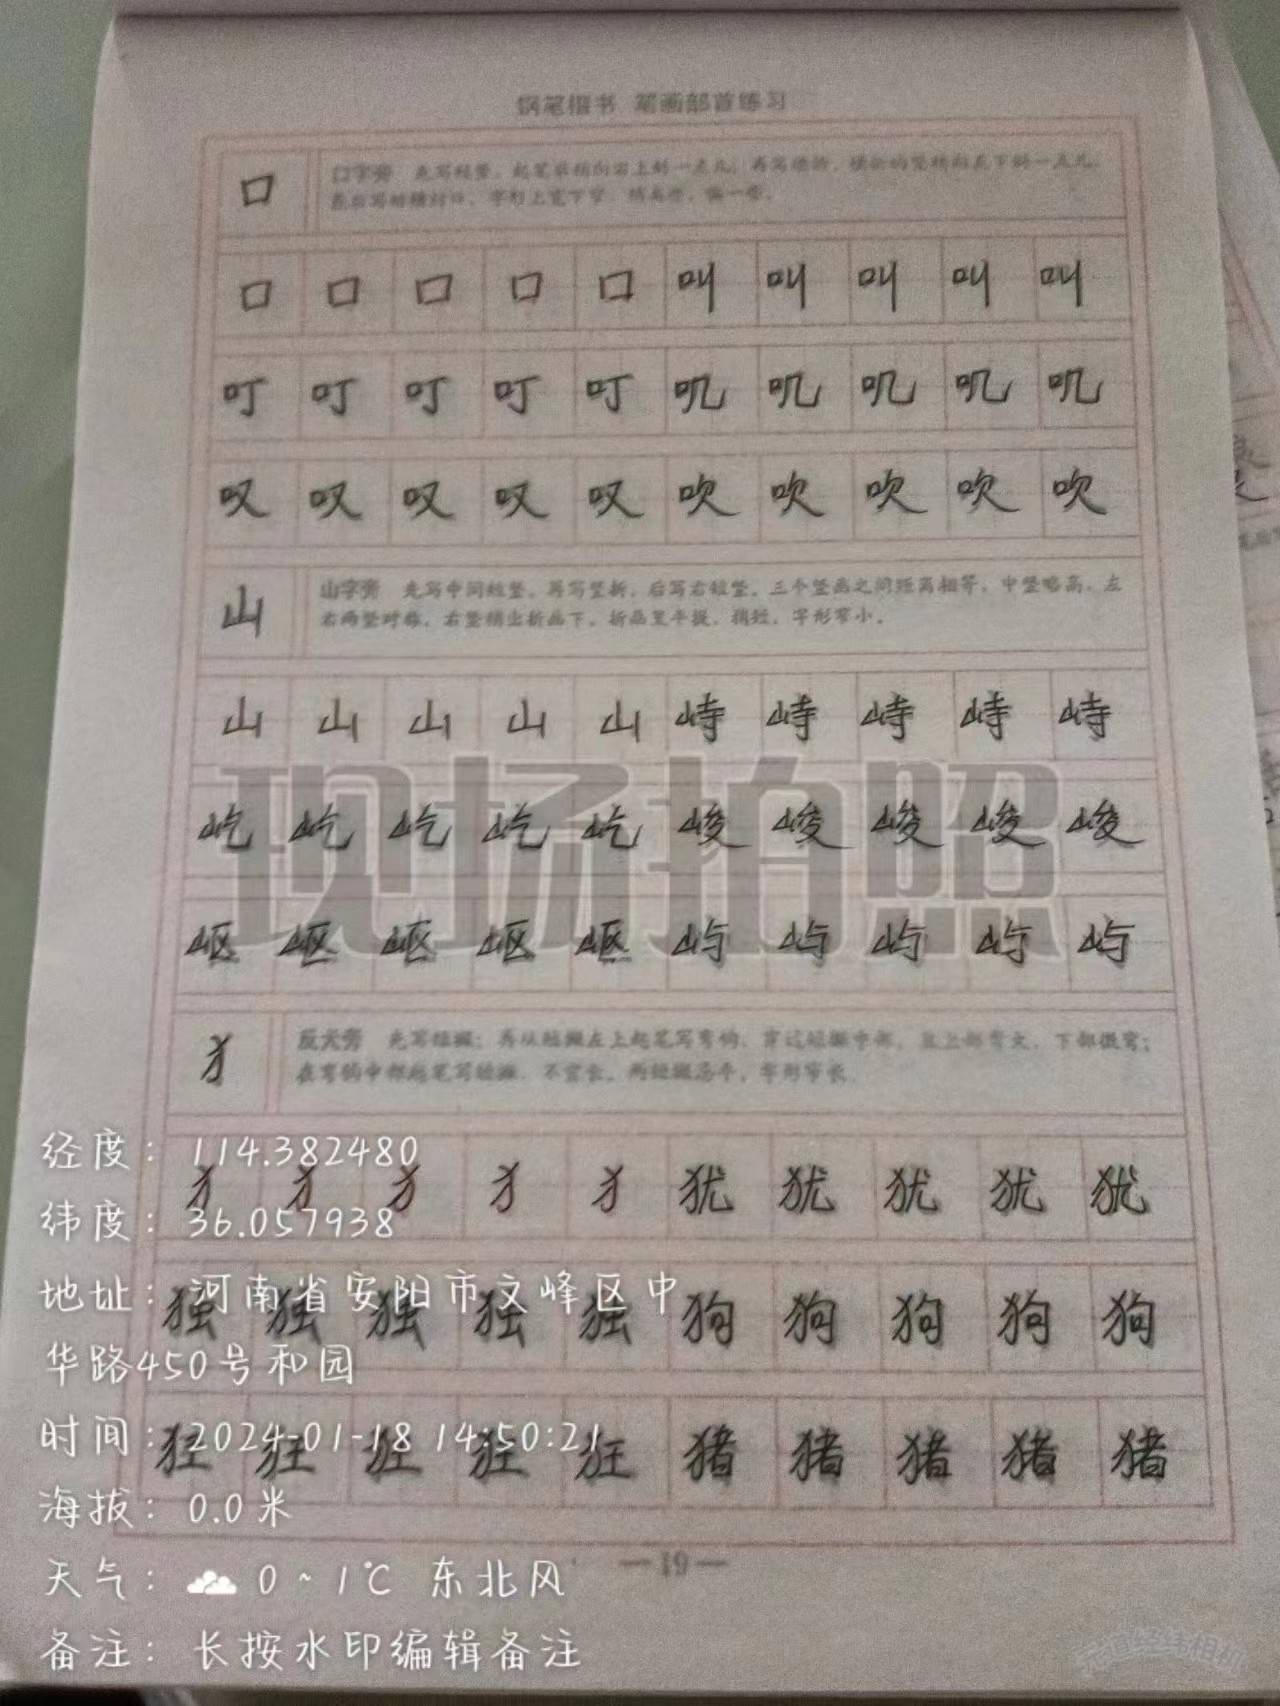 钢笔楷书 笔画部首练习
口
口字旁 先写短竖，起笔非稍向右上斜一点儿；再写横折，横折的竖稍向左下斜一点儿，
最后写短横封口，字形上宽下窄，稍高些，偏一些。
口 口 口 口 口 叫 叫 叫 叫 叫
叮 叮 叮 叮 叮 叽 叽 叽 叽 叽
叹 叹 叹 叹 叹 吹 吹 吹 吹 吹
山
山字旁 先写中间短竖，再写竖折，后写右短竖，三个竖画之间距离相等，中竖略高，左
右两竖对称，右竖稍出折画下，折画呈平提，稍短，字形窄小。
山 山 山 山 山 峙 峙 峙 峙 峙
屹 屹 屹 屹 屹 峻 峻 峻 峻 峻
现场拍照
岖 岖 岖 岖 岖 屿 屿 屿 屿 屿
犭
反犬旁 先写短撇；再从短撇左上起笔写弯钩，穿过短撇中部，且上部弯大，下部微弯；
在弯钩中部起笔写短撇，不宜长，两短撇忌平，字形窄长。
犭 犭 犭 犭 犭 犹 犹 犹 犹 犹
独 独 独 独 独 狗 狗 狗 狗 狗
狂 狂 狂 狂 狂 猪 猪 猪 猪 猪
— 19 —
经度：114.382480
纬度：36.057938
地址：河南省安阳市文峰区中
华路450号和园
时间：2024-01-18 14:50:21
海拔：0.0米
天气： 0~1℃ 东北风
备注：长按水印编辑备注
元道经纬相机